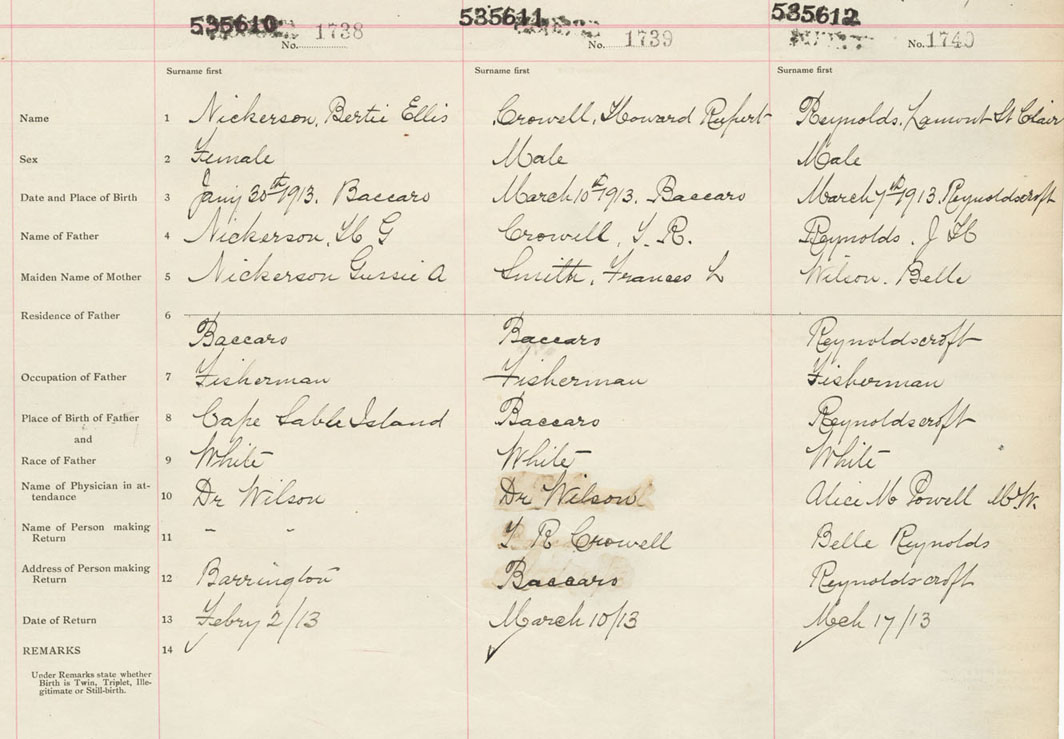 535610 535611 535612
No. 1738 No. 1739 No. 1740
Surname first Surname first Surname first
Name 1 Nickerson, Bertie Ellis Crowell, Howard Rupert Reynolds, Lamont St Clair
Sex 2 Female Male Male
Date and Place of Birth 3 Jany 30th 1913. Baccaro March 10th 1913. Baccaro March 7th 1913. Reynoldscroft
Name of Father 4 Nickerson, H G Crowell, T. R. Reynolds. J H
Maiden Name of Mother 5 Nickerson Gussie A Smith, Frances L Wilson. Belle
Residence of Father 6
Baccaro Baccaro Reynoldscroft
Occupation of Father 7 Fisherman Fisherman Fisherman
Place of Birth of Father 8 Cape Sable Island Baccaro Reynoldscroft
and
Race of Father 9 White White White
Name of Physician in at-
tendance 10 Dr Wilson Dr Wilson Alice M Powell M.W.
Name of Person making
Return 11 - - T R Crowell Belle Reynolds
Address of Person making
Return 12 Barrington Baccaro Reynoldscroft
Date of Return 13 Febry 2/13 March 10/13 Mch 17/13
REMARKS 14
Under Remarks state whether
Birth is Twin, Triplet, Ille-
gitimate or Still-birth.